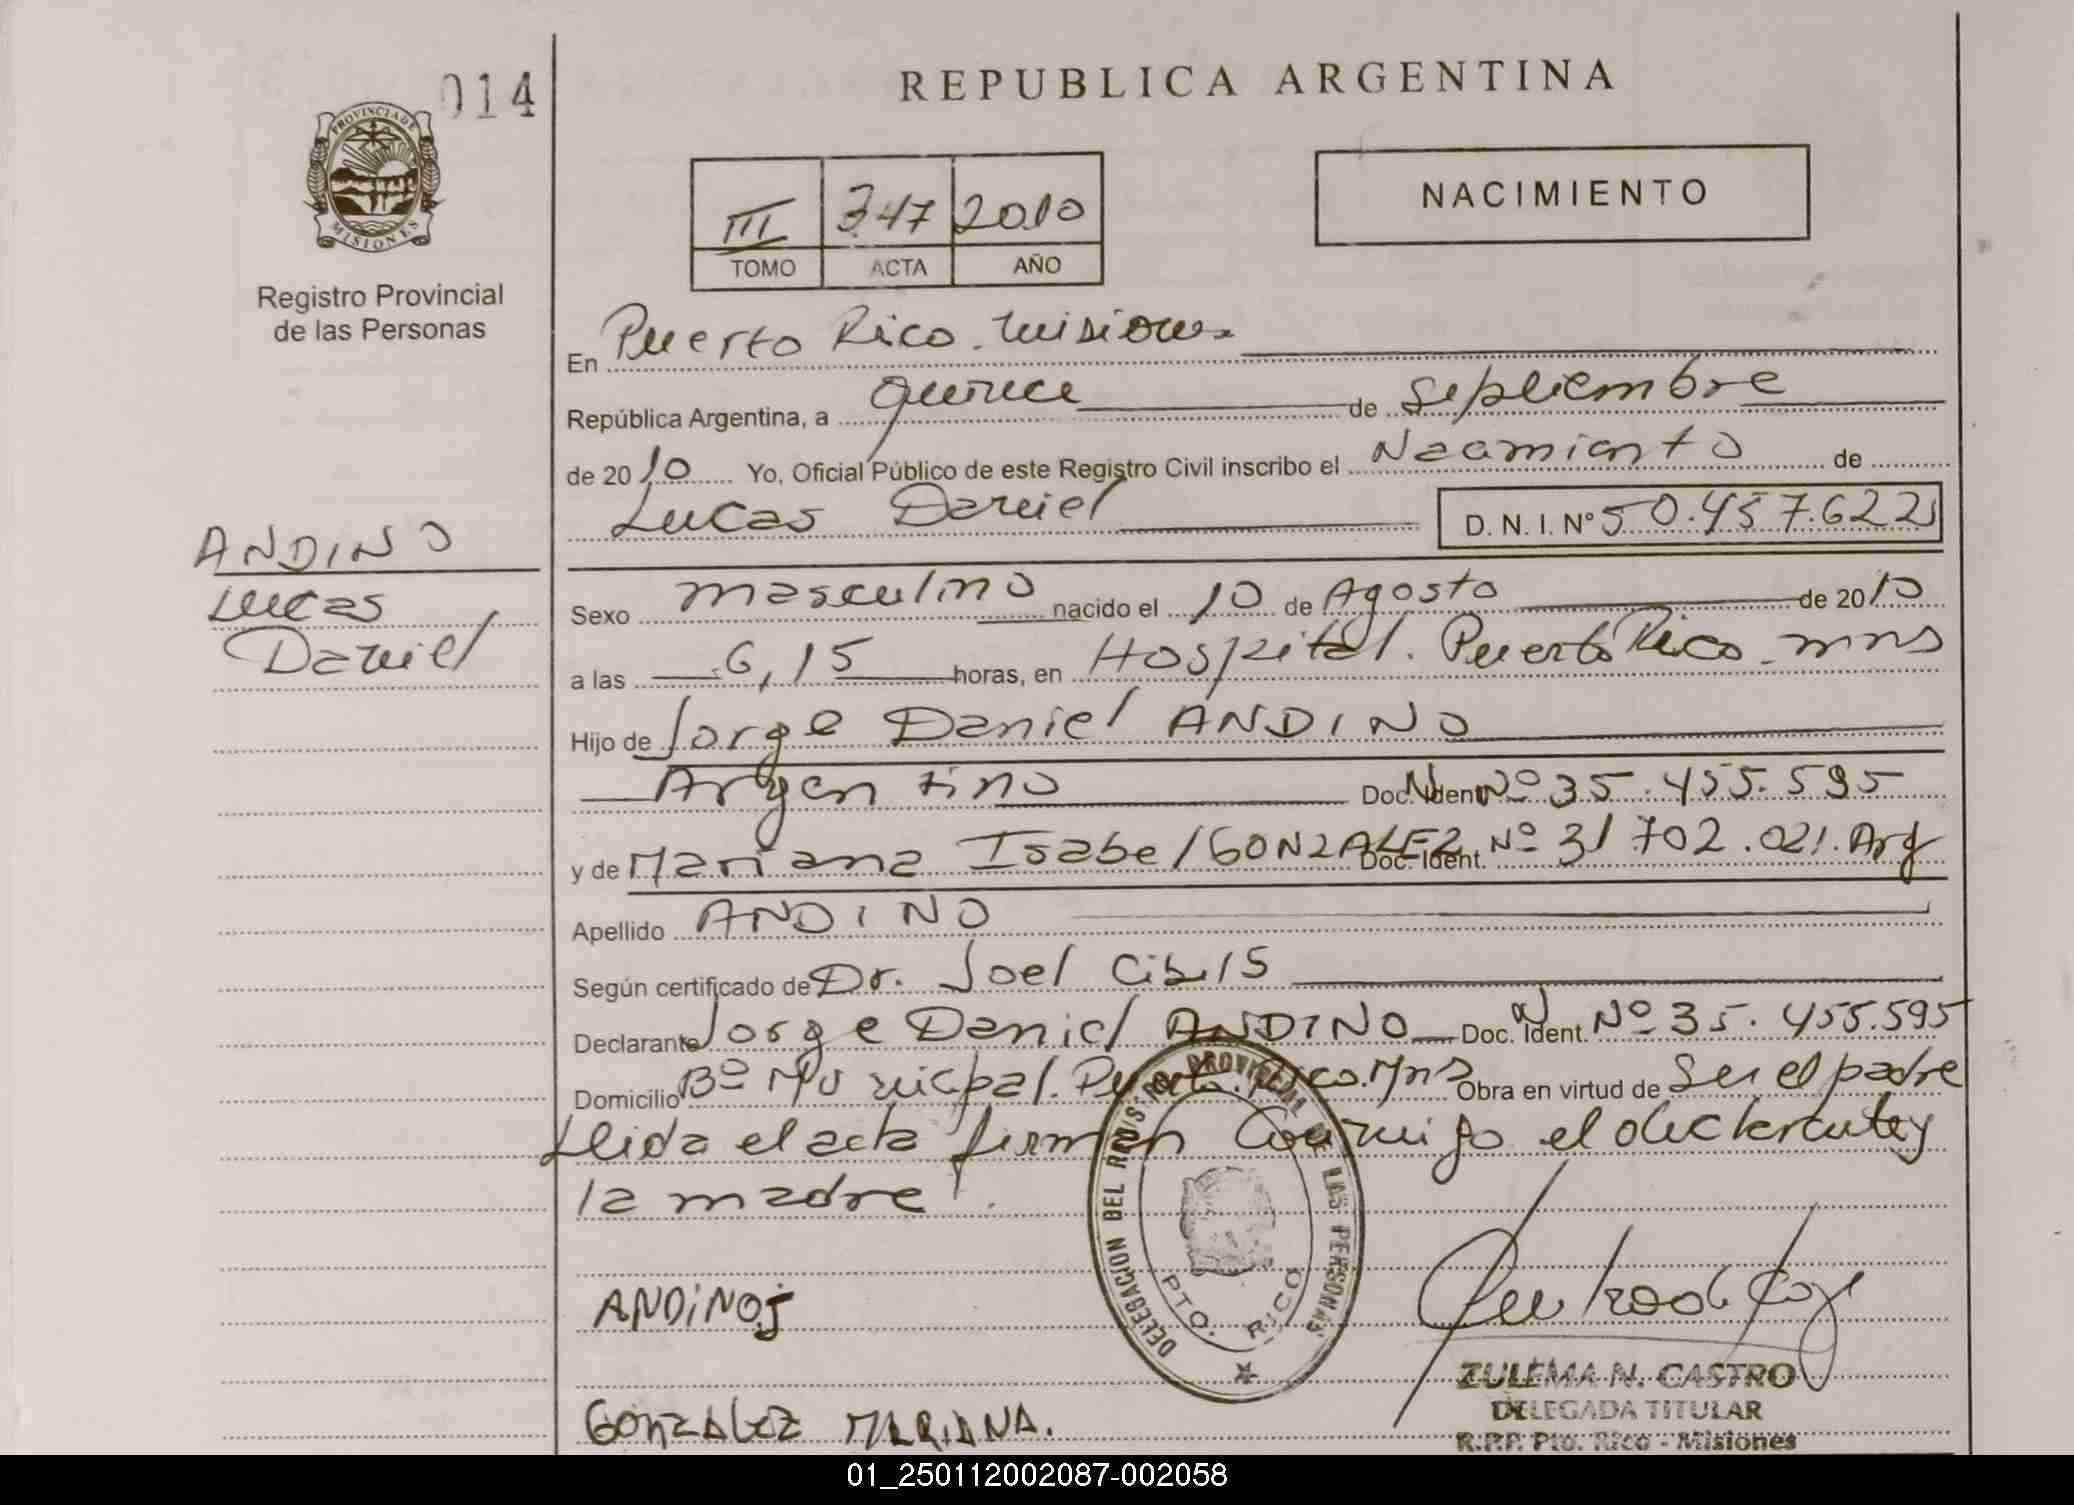 014
REPUBLICA ARGENTINA
PROVINCIA DE MISIONES
Registro Provincial
de las Personas
III 347 2010
TOMO ACTA AÑO
NACIMIENTO
En Puerto Rico. Misiones
República Argentina, a quince de Septiembre
de 2010 Yo, Oficial Público de este Registro Civil inscribo el Nacimiento de
Lucas Daniel D.N.I. Nº 50.457.622
ANDINO
Lucas
Daniel
Sexo masculino nacido el 10 de Agosto de 2010
a las 6,15 horas, en Hospital. Puerto Rico. mns
Hijo de Jorge Daniel ANDINO
Argentino Doc. N. Ident. Nº 35.455.595
y de Mariana Isabel GONZALEZ Doc. Ident. Nº 31702.021. Arg
Apellido ANDINO
Según certificado de Dr. Joel Cibils
Declarante Jorge Daniel ANDINO Doc. N Ident. Nº 35.455.595
Domicilio Bº Municipal. Puerto Rico. Mns Obra en virtud de Ser el padre
Leida el acta firman Conmigo el declarante y
la madre.
DELEGACION DEL REGISTRO PROVINCIAL DE LAS PERSONAS
PTO. RICO
ANDiNO j
ZULEMA N. CASTRO
DELEGADA TITULAR
R.P.P. Pto. Rico - Misiones
GonzALez MARIANA.
01_250112002087-002058